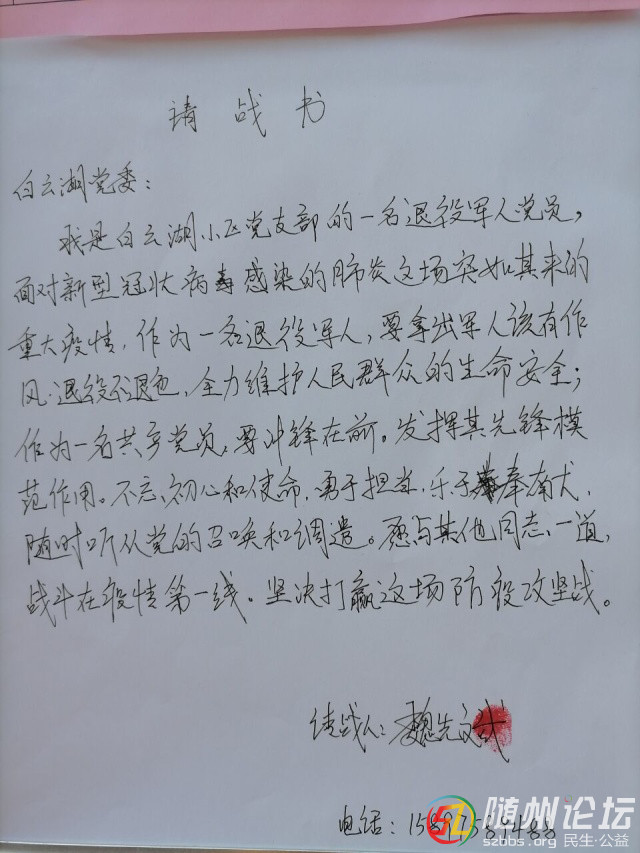 请战书
白云湖党委：
我是白云湖小区党支部的一名退役军人党员，
面对新型冠状病毒感染的肺炎这场突如其来的
重大疫情，作为一名退役军人，要拿出军人该有作
风.退役不退色，全力维护人民群众的生命安全；
作为一名共产党员，要冲锋在前。发挥其先锋模
范作用。不忘初心和使命，勇于担当，乐于奉献，
随时听从党的召唤和调遣。愿与其他同志一道，
战斗在疫情第一线。坚决打赢这场防疫攻坚战。
请战人：魏先文
电话：
随州论坛
szbbs.org 民生·公益